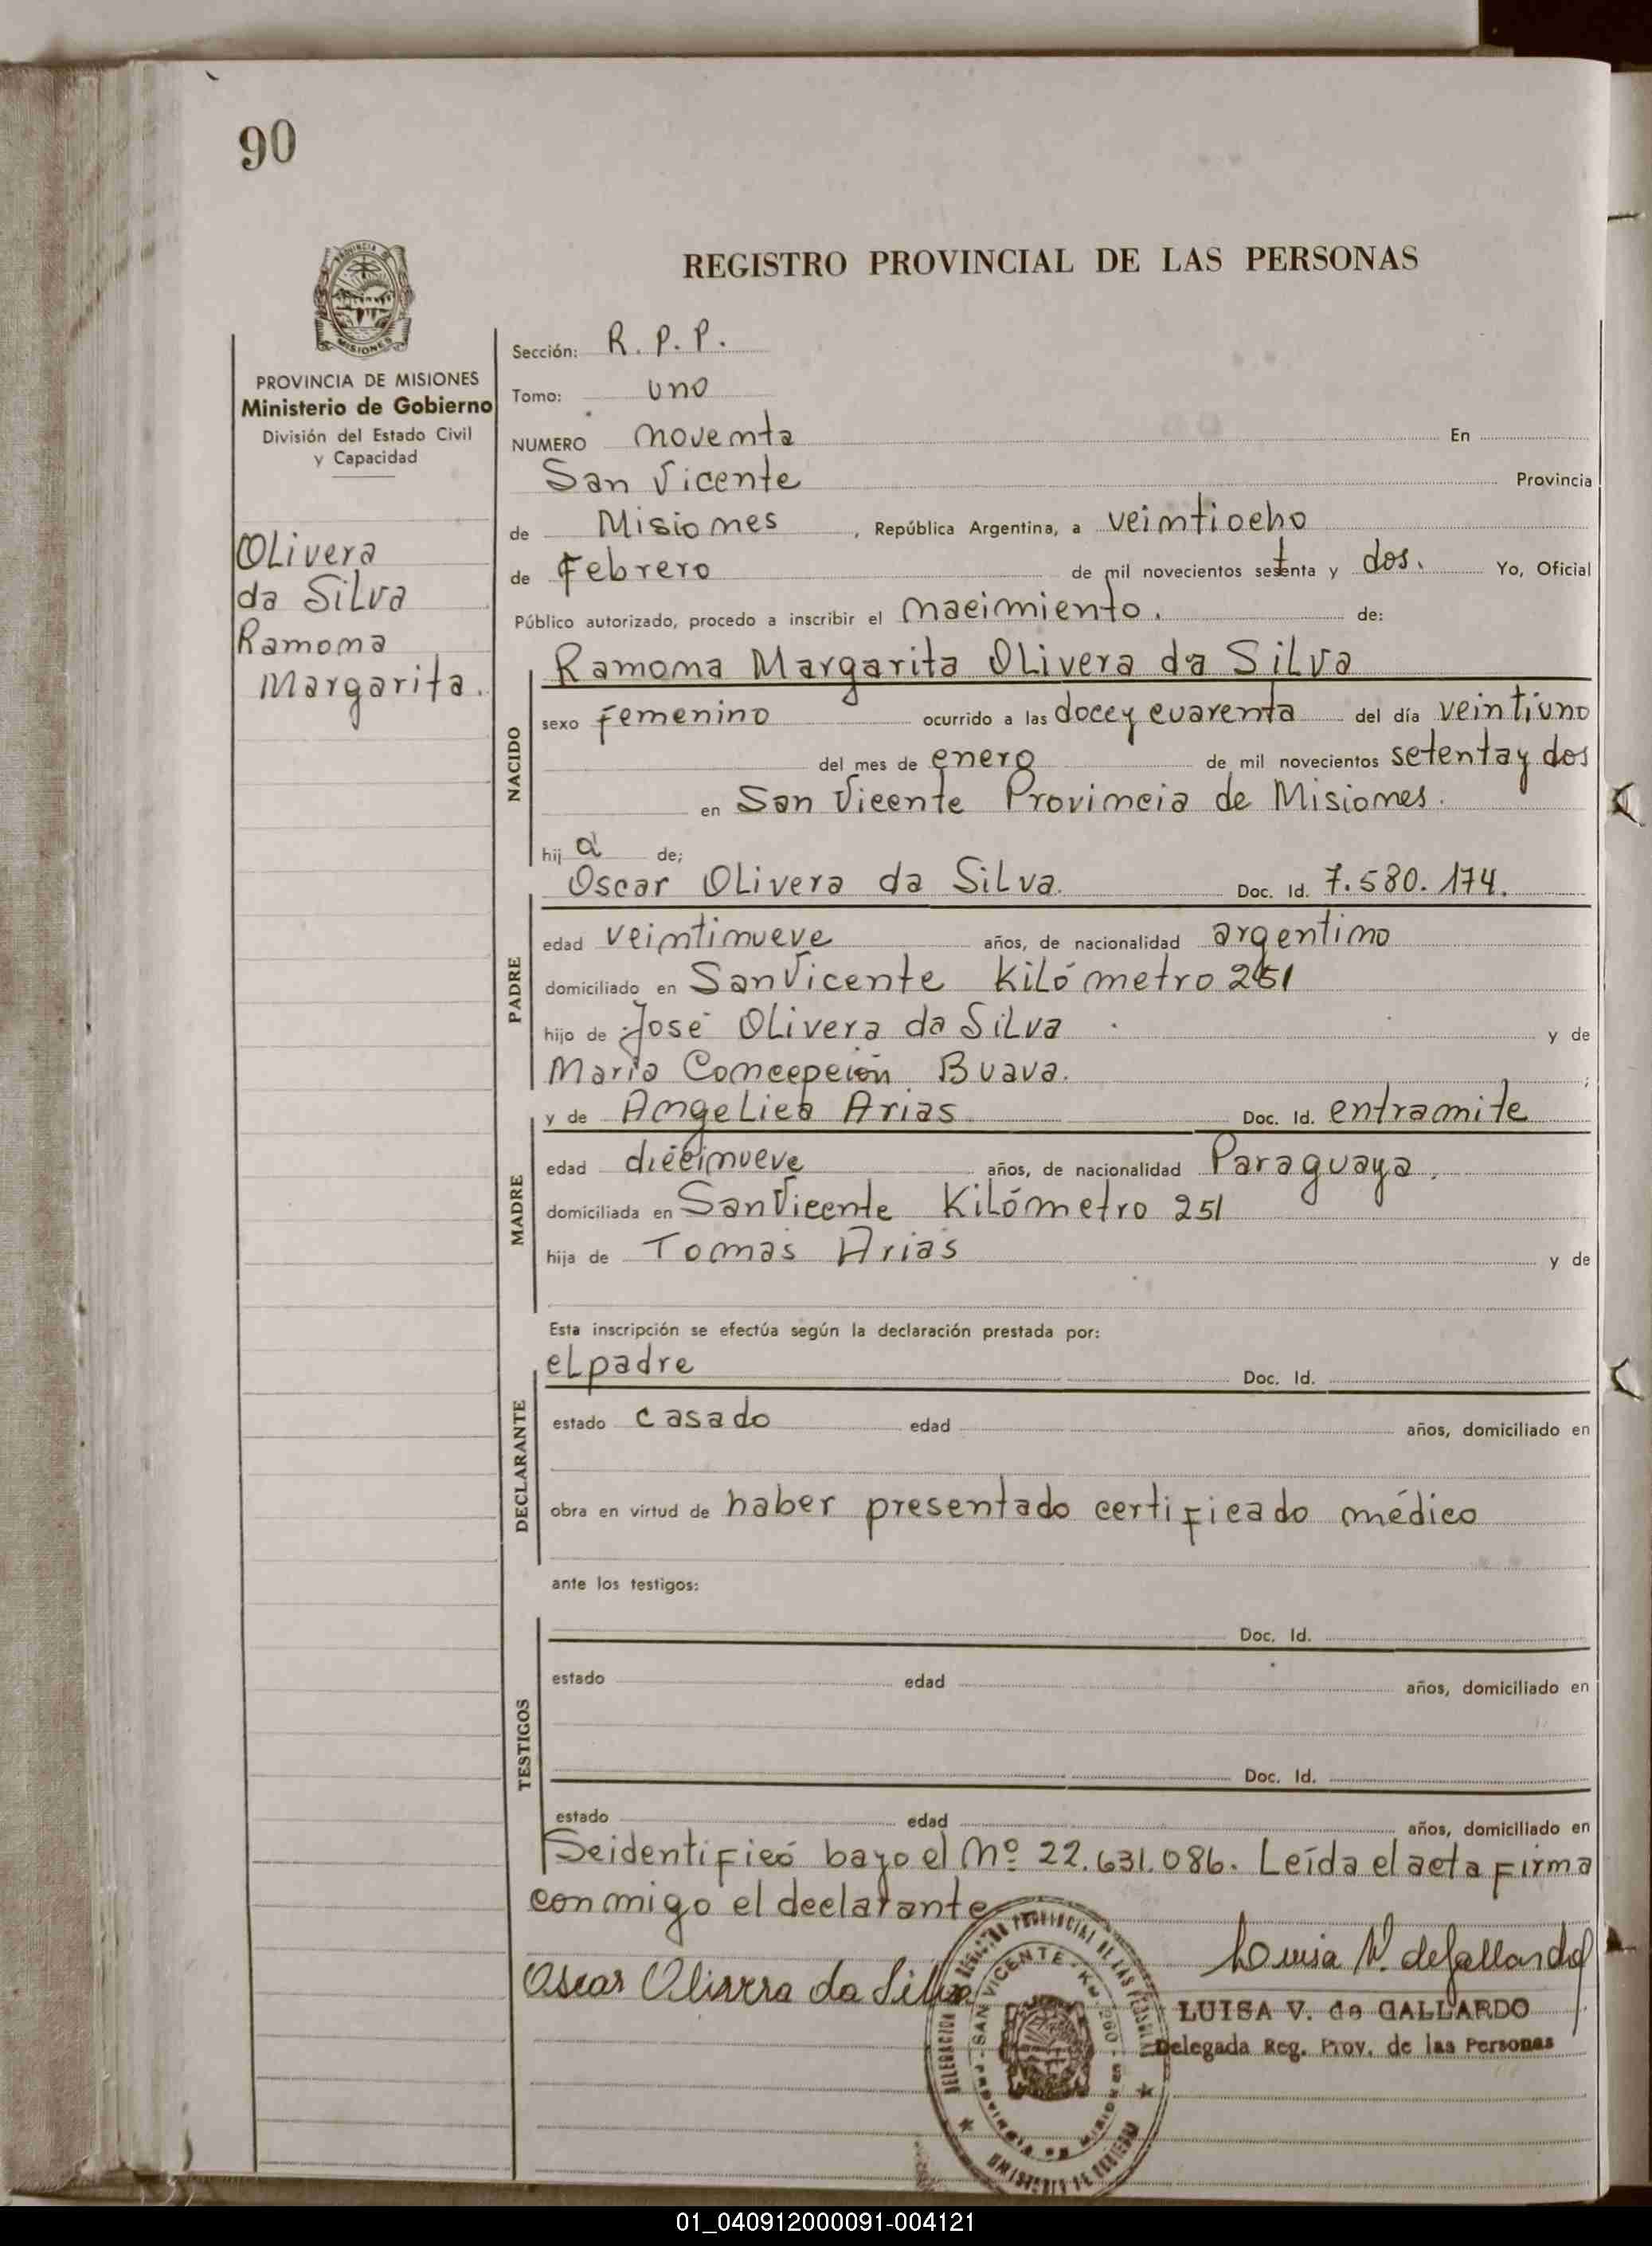 90
REGISTRO PROVINCIAL DE LAS PERSONAS
PROVINCIA
MISIONES
PROVINCIA DE MISIONES
Ministerio de Gobierno
División del Estado Civil
y Capacidad
Olivera
da Silva
Ramona
Margarita.
Sección: R. P. P.
Tomo: uno
NUMERO noventa En
San Vicente Provincia
de Misiones, República Argentina, a veintiocho
de Febrero de mil novecientos setenta y dos. Yo, Oficial
Público autorizado, procedo a inscribir el nacimiento. de:
NACIDO
Ramona Margarita Olivera da Silva
sexo femenino ocurrido a las doce y cuarenta del día veintiuno
del mes de enero de mil novecientos setenta y dos
en San Vicente Provincia de Misiones.
hij a de;
PADRE
Oscar Olivera da Silva. Doc. Id. 7.580.174.
edad veintinueve años, de nacionalidad argentino
domiciliado en San Vicente Kilómetro 251
hijo de José Olivera da Silva y de
Maria Concepción Buava. ;
MADRE
y de Angelica Arias Doc. Id. entramite
edad diecinueve años, de nacionalidad Paraguaya.
domiciliada en San Vicente Kilómetro 251
hija de Tomas Arias y de
Esta inscripción se efectúa según la declaración prestada por:
DECLARANTE
el padre Doc. Id.
estado casado edad años, domiciliado en
obra en virtud de haber presentado certificado médico
ante los testigos:
TESTIGOS
Doc. Id.
estado edad años, domiciliado en
Doc. Id.
estado edad años, domiciliado en
Se identificó bajo el Nº 22.631.086. Leída el acta firma
conmigo el declarante
Oscar Olivera da Silva
Luisa V. de Gallardo
LUISA V. de GALLARDO
Delegada Reg. Prov. de las Personas
DELEGACION REGISTRO PROVINCIAL DE LAS PERSONAS
SAN VICENTE - Km. 260
PROVINCIA DE MISIONES
MINISTERIO DE GOBIERNO
01_040912000091-004121